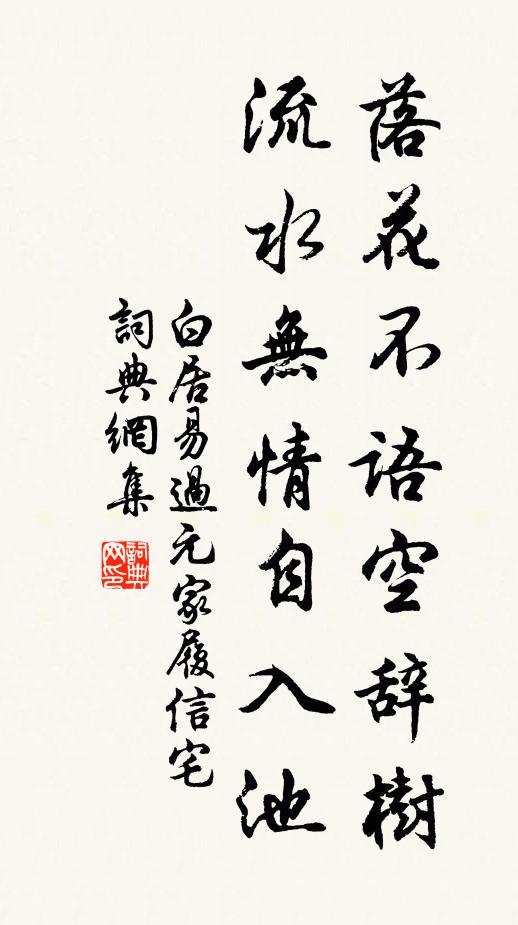 落花不语空辞樹
流水無情自入池
白居易過元家履信宅
詞典網集
詞典网印